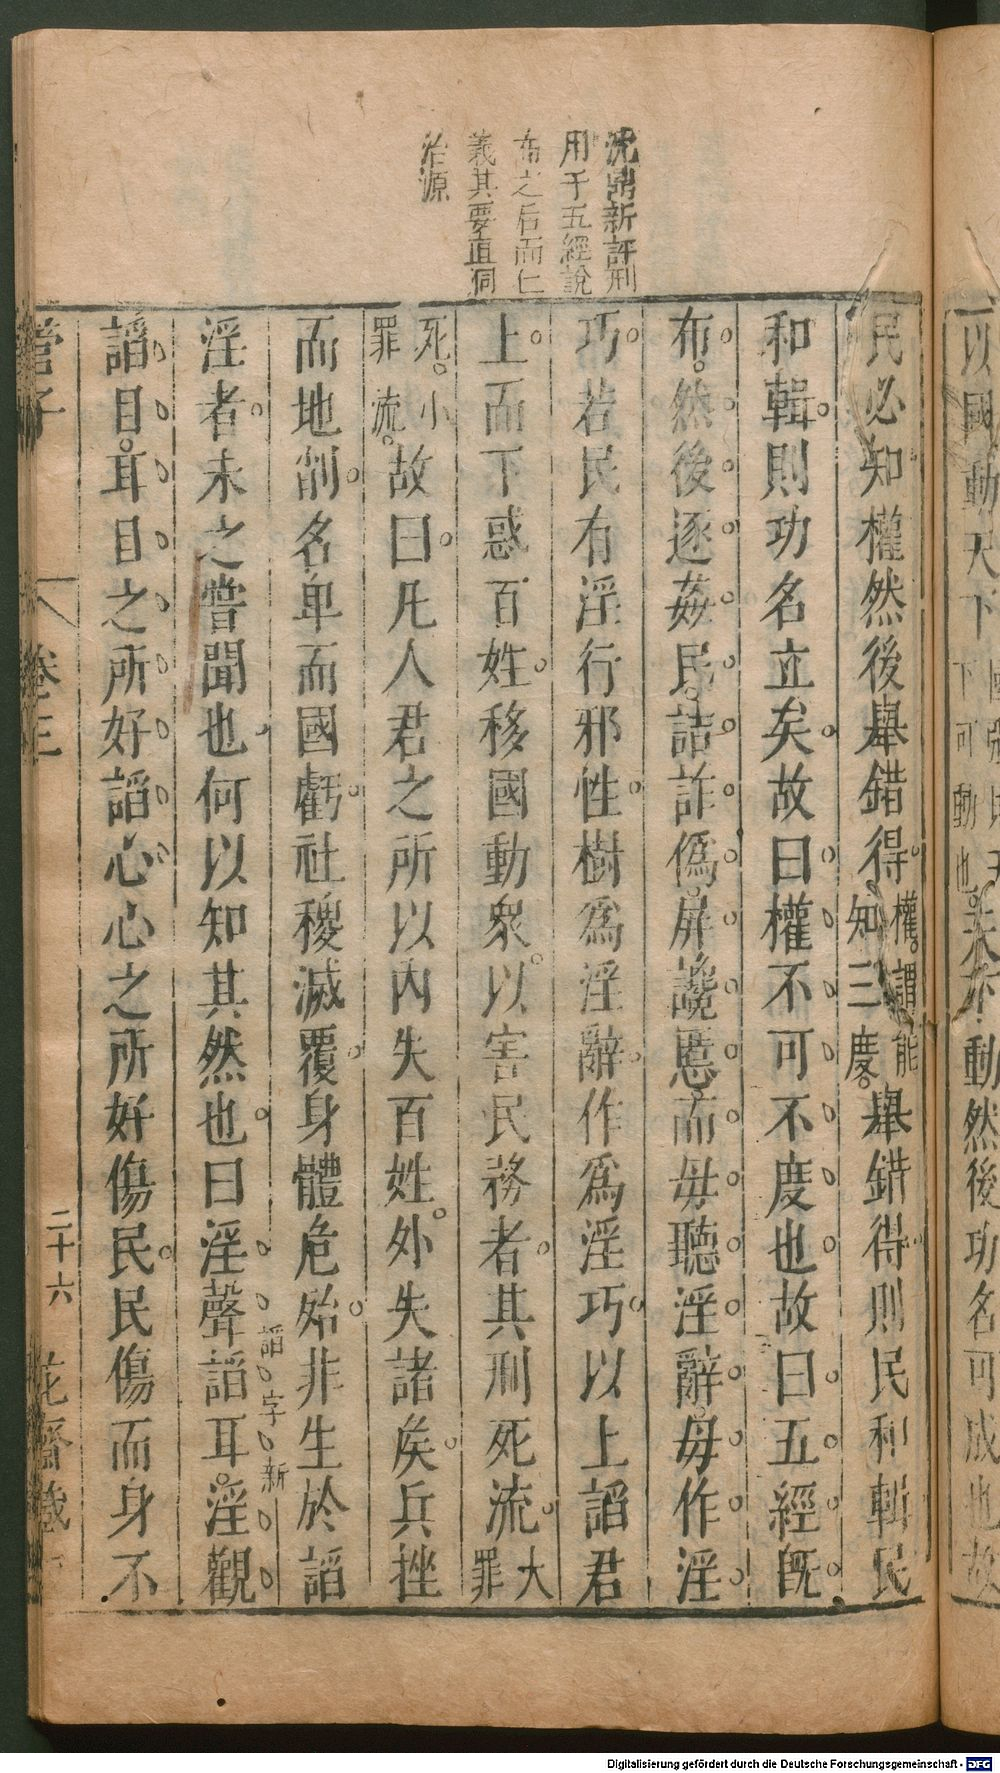 以國動天下
下可動也
未下動然後功名可成也故
沈鼎新評刑
用于五經說
布之后而仁
義其要直侗
治源
民必知權然後舉錯得權謂能知三度舉錯得則民和輯民
和輯則功名立矣故曰權不可不度也故曰五經既
布然後逐姦民詰詐僞屏讒慝而毋聽淫辭毋作淫
巧若民有淫行邪性樹爲淫辭作爲淫巧以上謟君
上而下惑百姓移國動衆以害民務者其刑死流大罪
死小罪流故曰凡人君之所以內失百姓外失諸矦兵挫
而地削名卑而國虧社稷滅覆身體危殆非生於謟
謟字新
淫者未之嘗聞也何以知其然也曰淫聲謟耳淫觀
謟目耳目之所好謟心心之所好傷民民傷而身不
管子 卷三 二十六 花齋藏
Digitalisierung gefördert durch die Deutsche Forschungsgemeinschaft - DFG